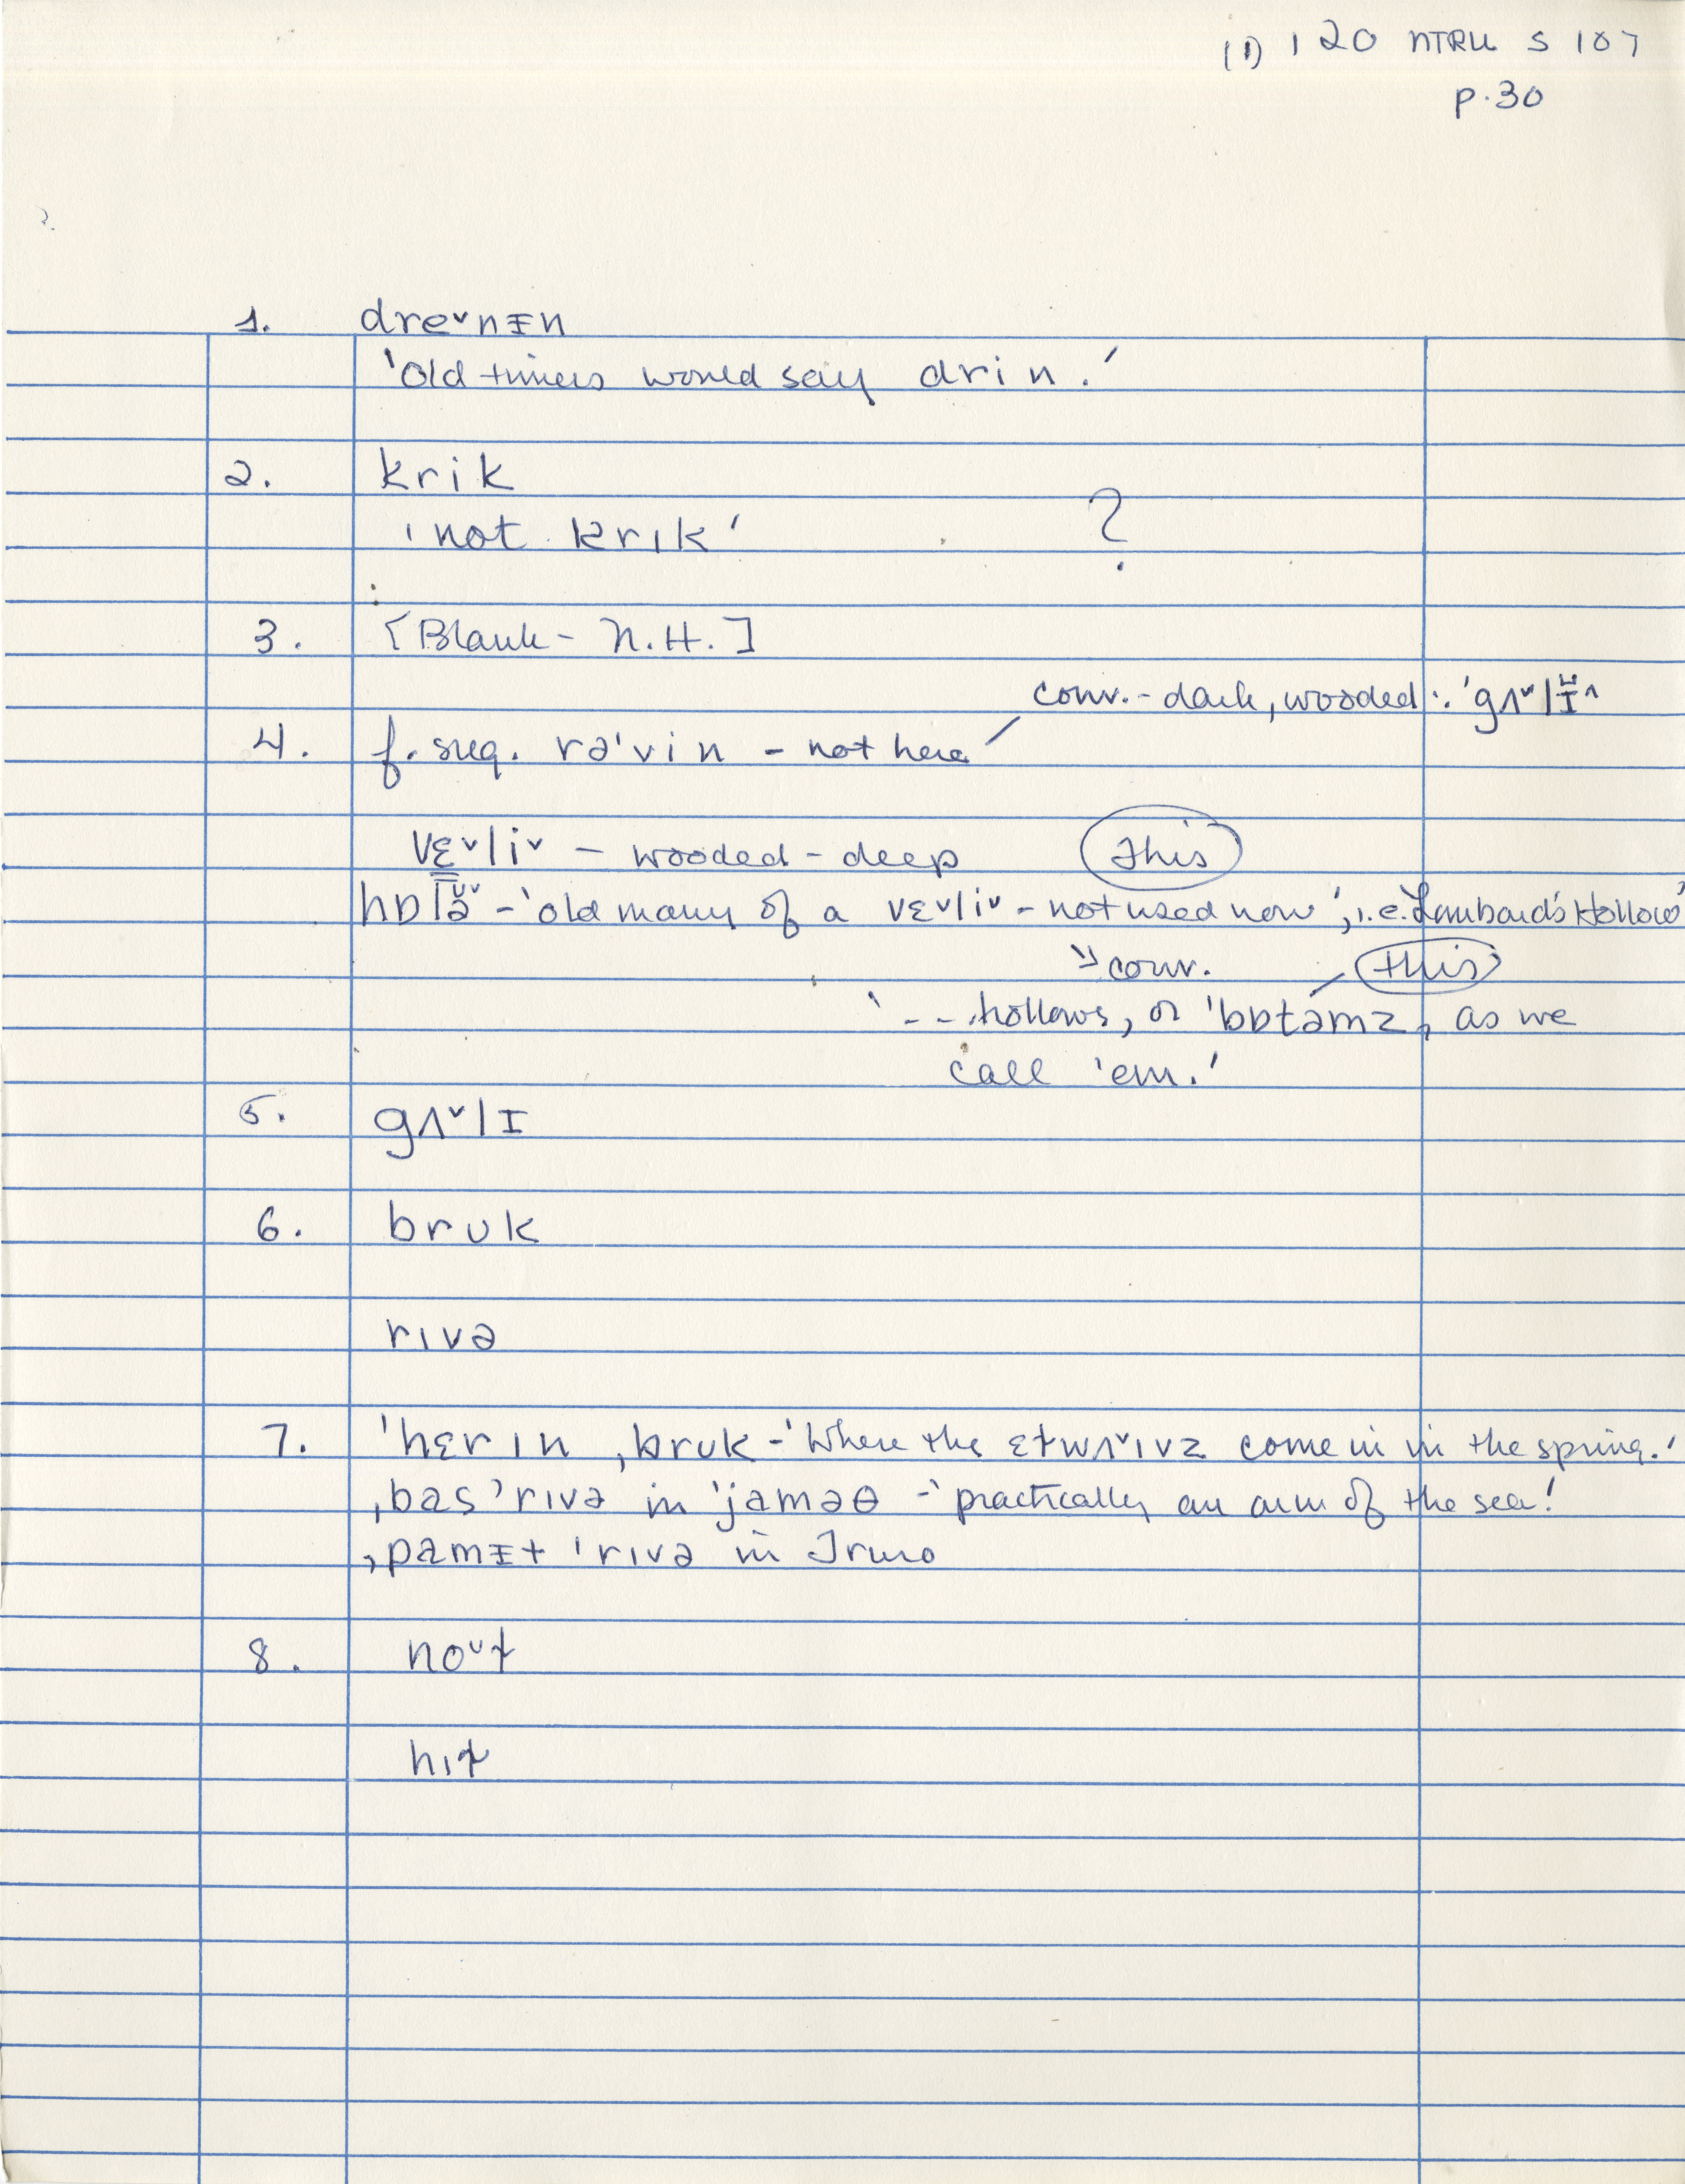 (1) 120 NTRU S 107
p.30
1. dre˅nᵻn
'Old timers would say drin.'
2. krik
'not krɪk' ?
3. [Blank - N.H.]
conv. - dark, wooded: 'gʌ˅l
4. f. sug. rə'vin - not here
vɛ˅li˅ - wooded - deep this
- 'old many of a vɛ˅li˅ - not used now', i.e. Lombard's Hollow'
conv. this
'--- hollows, or 'bɒtəmz, as we
call 'em.'
5. gʌ˅lɪ
6. bruk
rɪvə
7. 'hɛrɪn ˌbruk - 'Where the come in in the spring.'
ˌbas 'rɪvə in 'jaməθ - 'practically an arm of the sea!
ˌpamᵻt 'rɪvə in Truro
8.